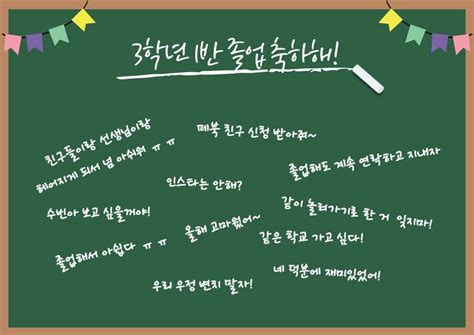 3학년 1반 졸업 축하해!
친구들이랑 선생님이랑
헤어지게 되서 넘 아쉬워 ㅠㅠ
페북 친구 신청 받아줘~
졸업해도 계속 연락하고 지내자
인스타는 안해?
수빈아 보고 싶을꺼야!
올해 고마웠어~
같이 놀러가기로 한 거 잊지마!
같은 학교 가고 싶다!
졸업해서 아쉽다 ㅠㅠ
우리 우정 변치 말자!
네 덕분에 재미있었어!